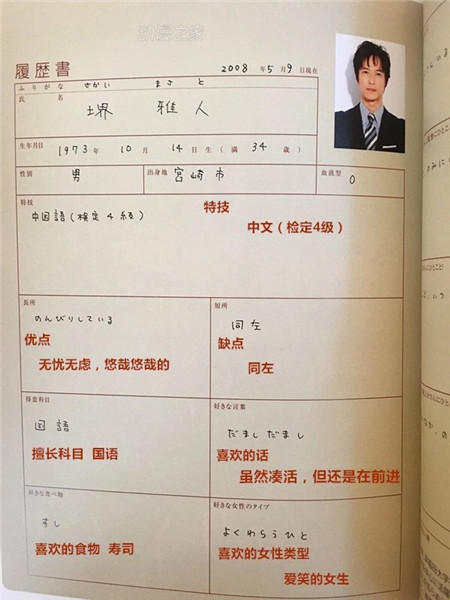 动漫之家
履歴書
2008 年 5月 9日現在
ふりがな さかい まさと
氏名 堺 雅人
生年月日 1973 年 10 月 14 日生 ( 満 34 歳 )
性別 男 出身地 宮崎市 血液型 O
特技
中国語 (検定4級)
特技
中文(检定4级)
長所
のんびりしている
优点
无忧无虑,悠哉悠哉的
短所
同左
缺点
同左
得意科目
国語
擅长科目 国语
好きな言葉
だましだまし
喜欢的话
虽然凑活,但还是在前进
好きな食べ物
すし
喜欢的食物 寿司
好きな女性のタイプ
よくわらうひと
喜欢的女性类型
爱笑的女生